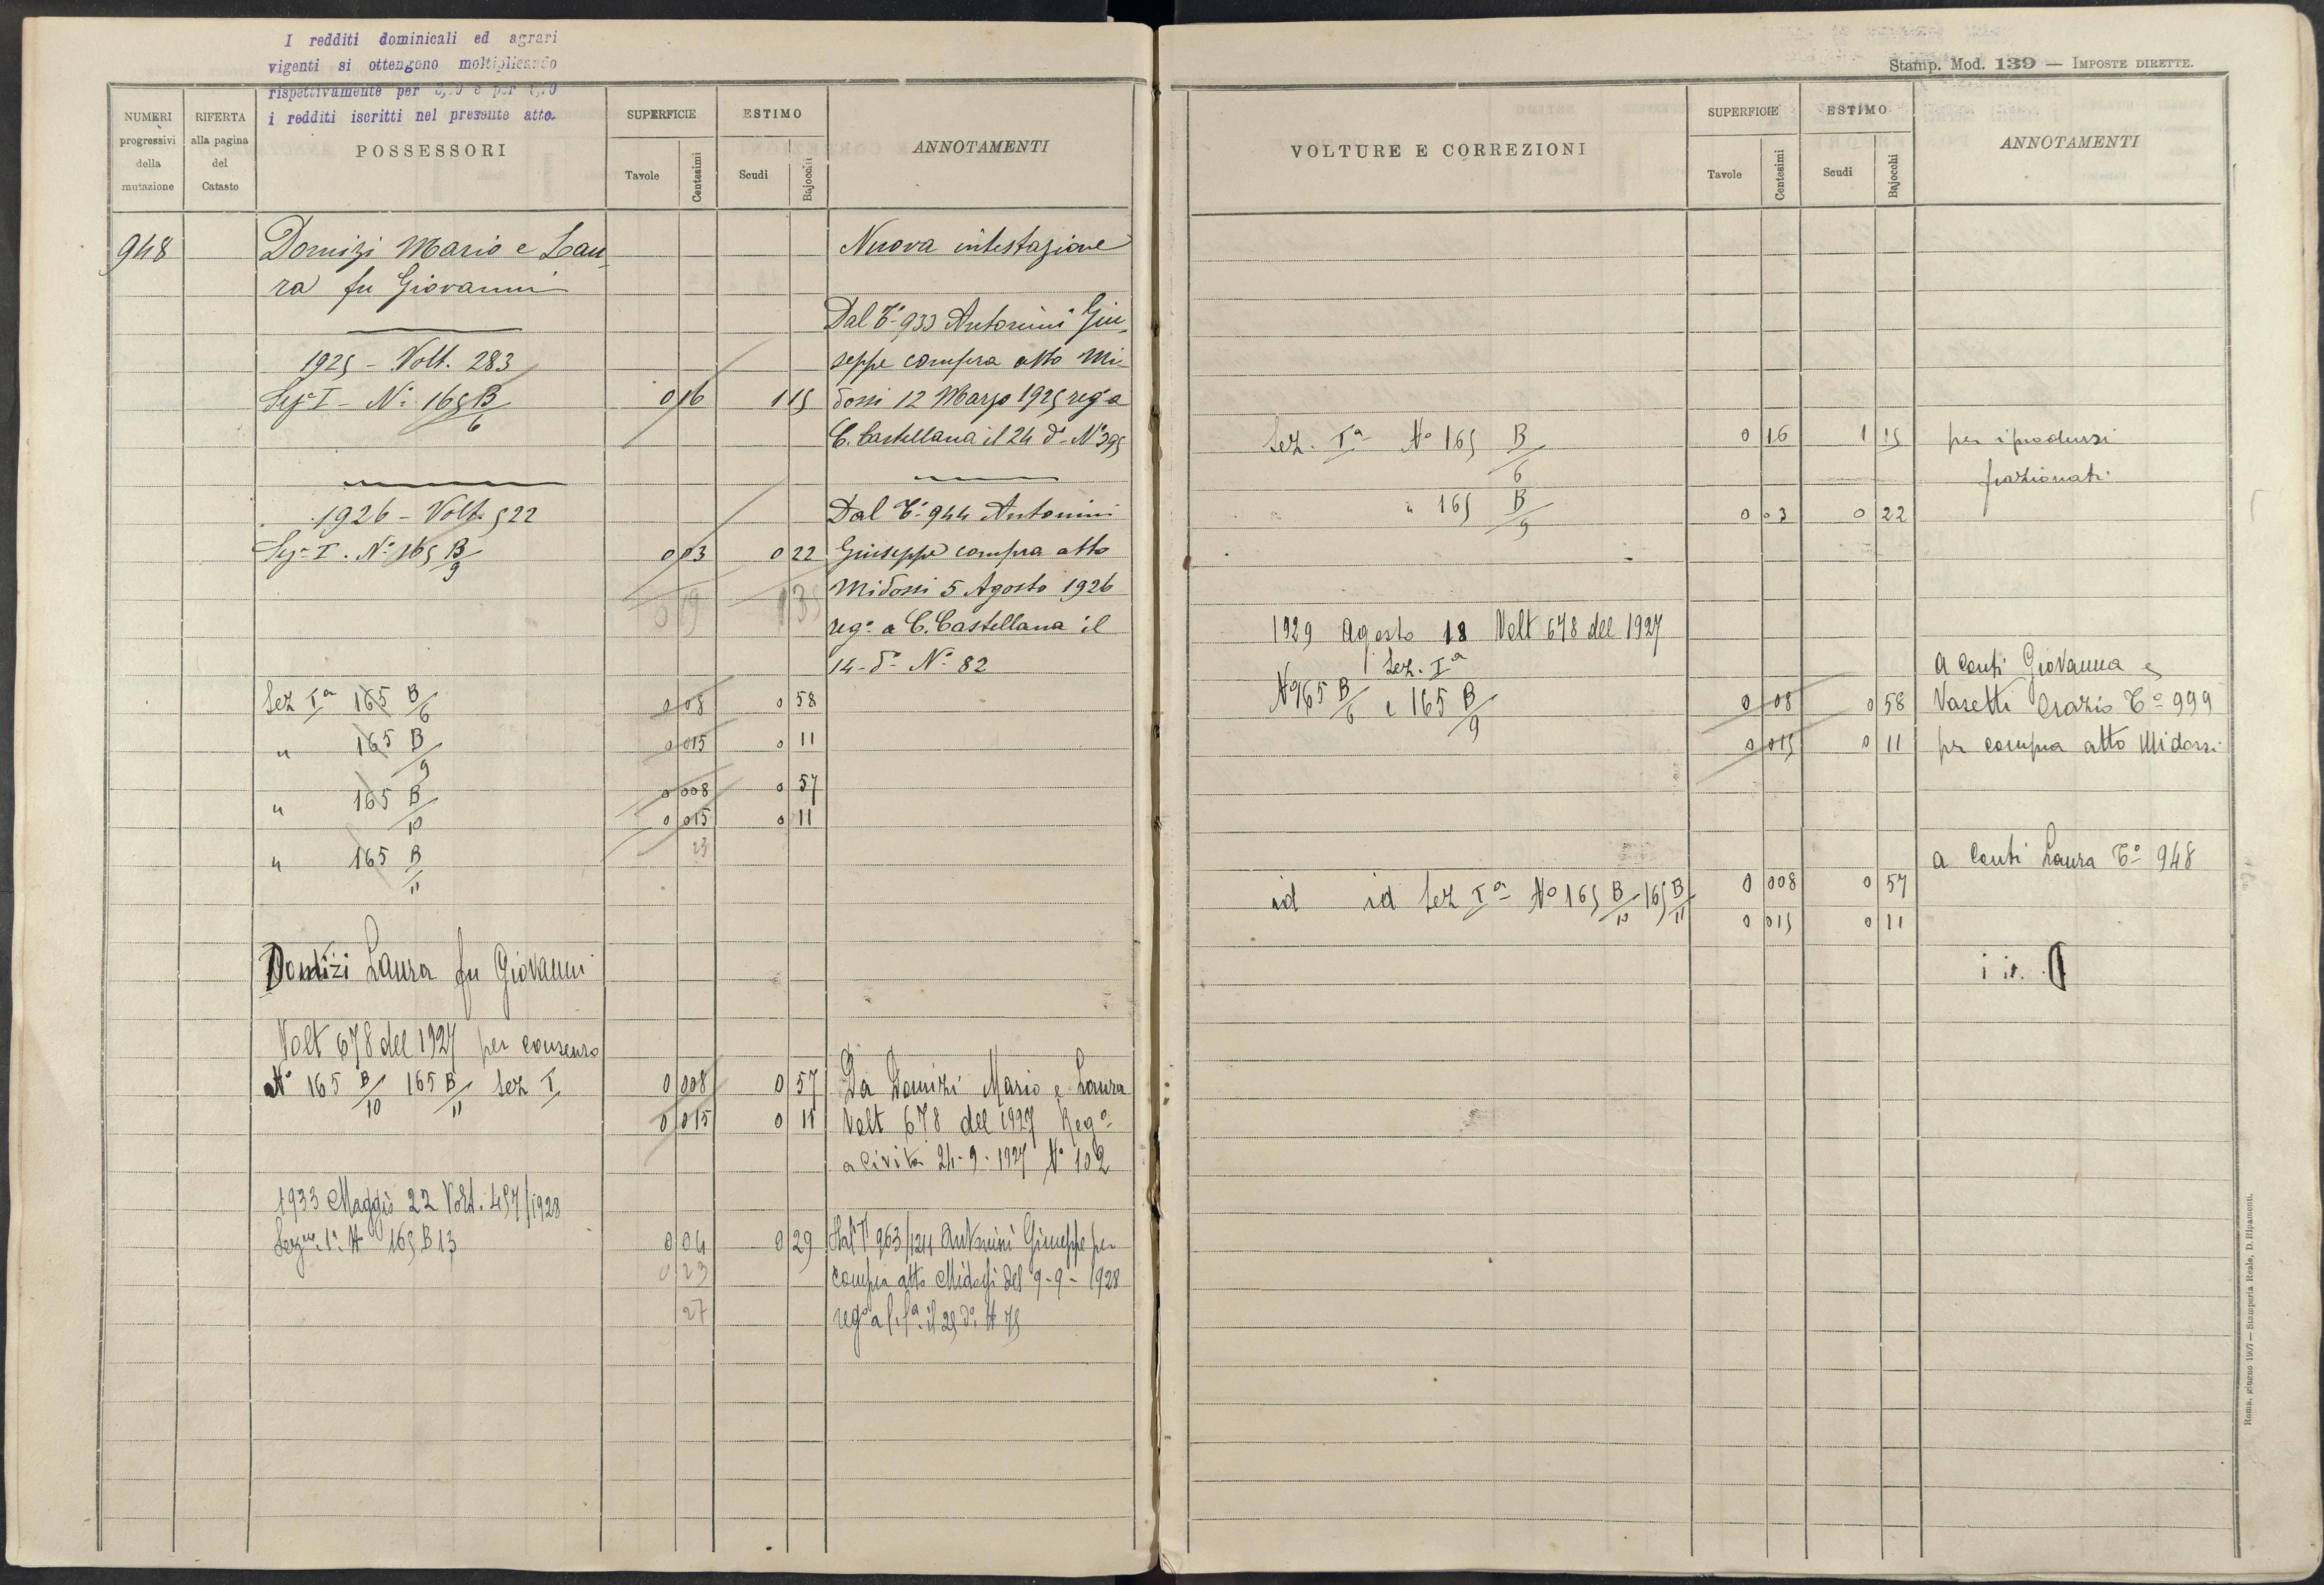 I redditi dominicali ed agrari
vigenti si ottengono moltiplicando
rispettivamente per
i redditi iscritti nel presente atto.
NUMERI progressivi della mutazione
RIFERTA alla pagina del Catasto
POSSESSORI
SUPERFICIE
Tavole
Centesimi
ESTIMO
Scudi
Bajocchi
ANNOTAMENTI
948
Domizi Mario e Lau-
ra fu Giovanni
Nuova intestazione
1925 - Volt. 283
Sez. I - N. 165 B/6 0 16 1 15
Dal T. 933 Antonini Giu-
seppe compra atto Mi-
dossi 12 Marzo 1925 reg. a
C. Castellana il 24 d. N. 395
1926 - Volt. 522
Sez. I. N. 165 B/9 0 03 0 22
0 19 1 35
Dal T. 944 Antonini
Giuseppe compra atto
Midossi 5 Agosto 1926
reg. a C. Castellana il
14 - d. N. 82
Sez Ia 165 B/6 0 08 0 58
" 165 B/9 0 015 0 11
" 165 B/10 0 008 0 57
" 165 B/11 0 015 0 11
23
Domizi Laura fu Giovanni
Volt 678 del 1927 per consenso
N° 165 B/10 165 B/11 Sez I 0 008 0 57
0 015 0 11
Da Domizi Mario e Laura
Volt 678 del 1927 Reg°
a Civita 24-9-1927 N° 102
1933 Maggio 22 Volt. 457/1928
Sez.ne 1a N 165 B 13 0 04 0 29
0 23
27
Dal T° 963/1211 Antonini Giuseppe per
compra atto Midossi del 9-9-1928
reg° a il 25 d° N 75
Stamp. Mod. 139 — IMPOSTE DIRETTE.
VOLTURE E CORREZIONI
SUPERFICIE
Tavole
Centesimi
ESTIMO
Scudi
Bajocchi
ANNOTAMENTI
Sez. Ia N° 165 B/6 0 16 1 15 per riprodursi
frazionati
" 165 B/9 0 03 0 22
1929 Agosto 18 Volt 678 del 1927
Sez. Ia
N° 165 B/6 e 165 B/9 0 08 0 58
0 015 0 11
a Conti Giovanna e
Vasetti Orazio T° 999
per compra atto Midossi
id id Sez Ia N° 165 B/10 165 B/11 0 008 0 57
0 015 0 11
a Conti Laura T° 948
Roma, giugno 1907 — Stamperia Reale, D. Ripamonti.